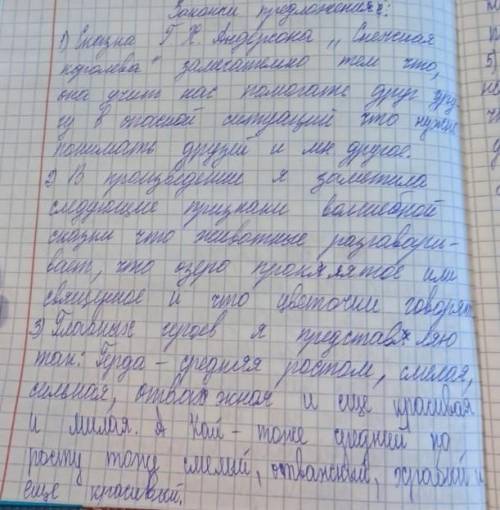 Закончи предложения:
1) Сказка Г. Х. Андерсона „Снежная
королева" замечательно тем что,
она учить нас помогать друг дру-
гу в опасной ситуаций что нужно
понимать друзей и мн. другое.
2) В произведение я заметила
следующие признаки волшебной
сказки что животные разговари-
вает, что озеро проклятое или
священное и что цветочки говорят
3) Главных героев я представляю
так: Герда – средняя ростом, смелая,
сильная, отважная и еще красивая
и милая. А Кай – тоже средний по
росту тоже смелый, и
еще красивый.
5)